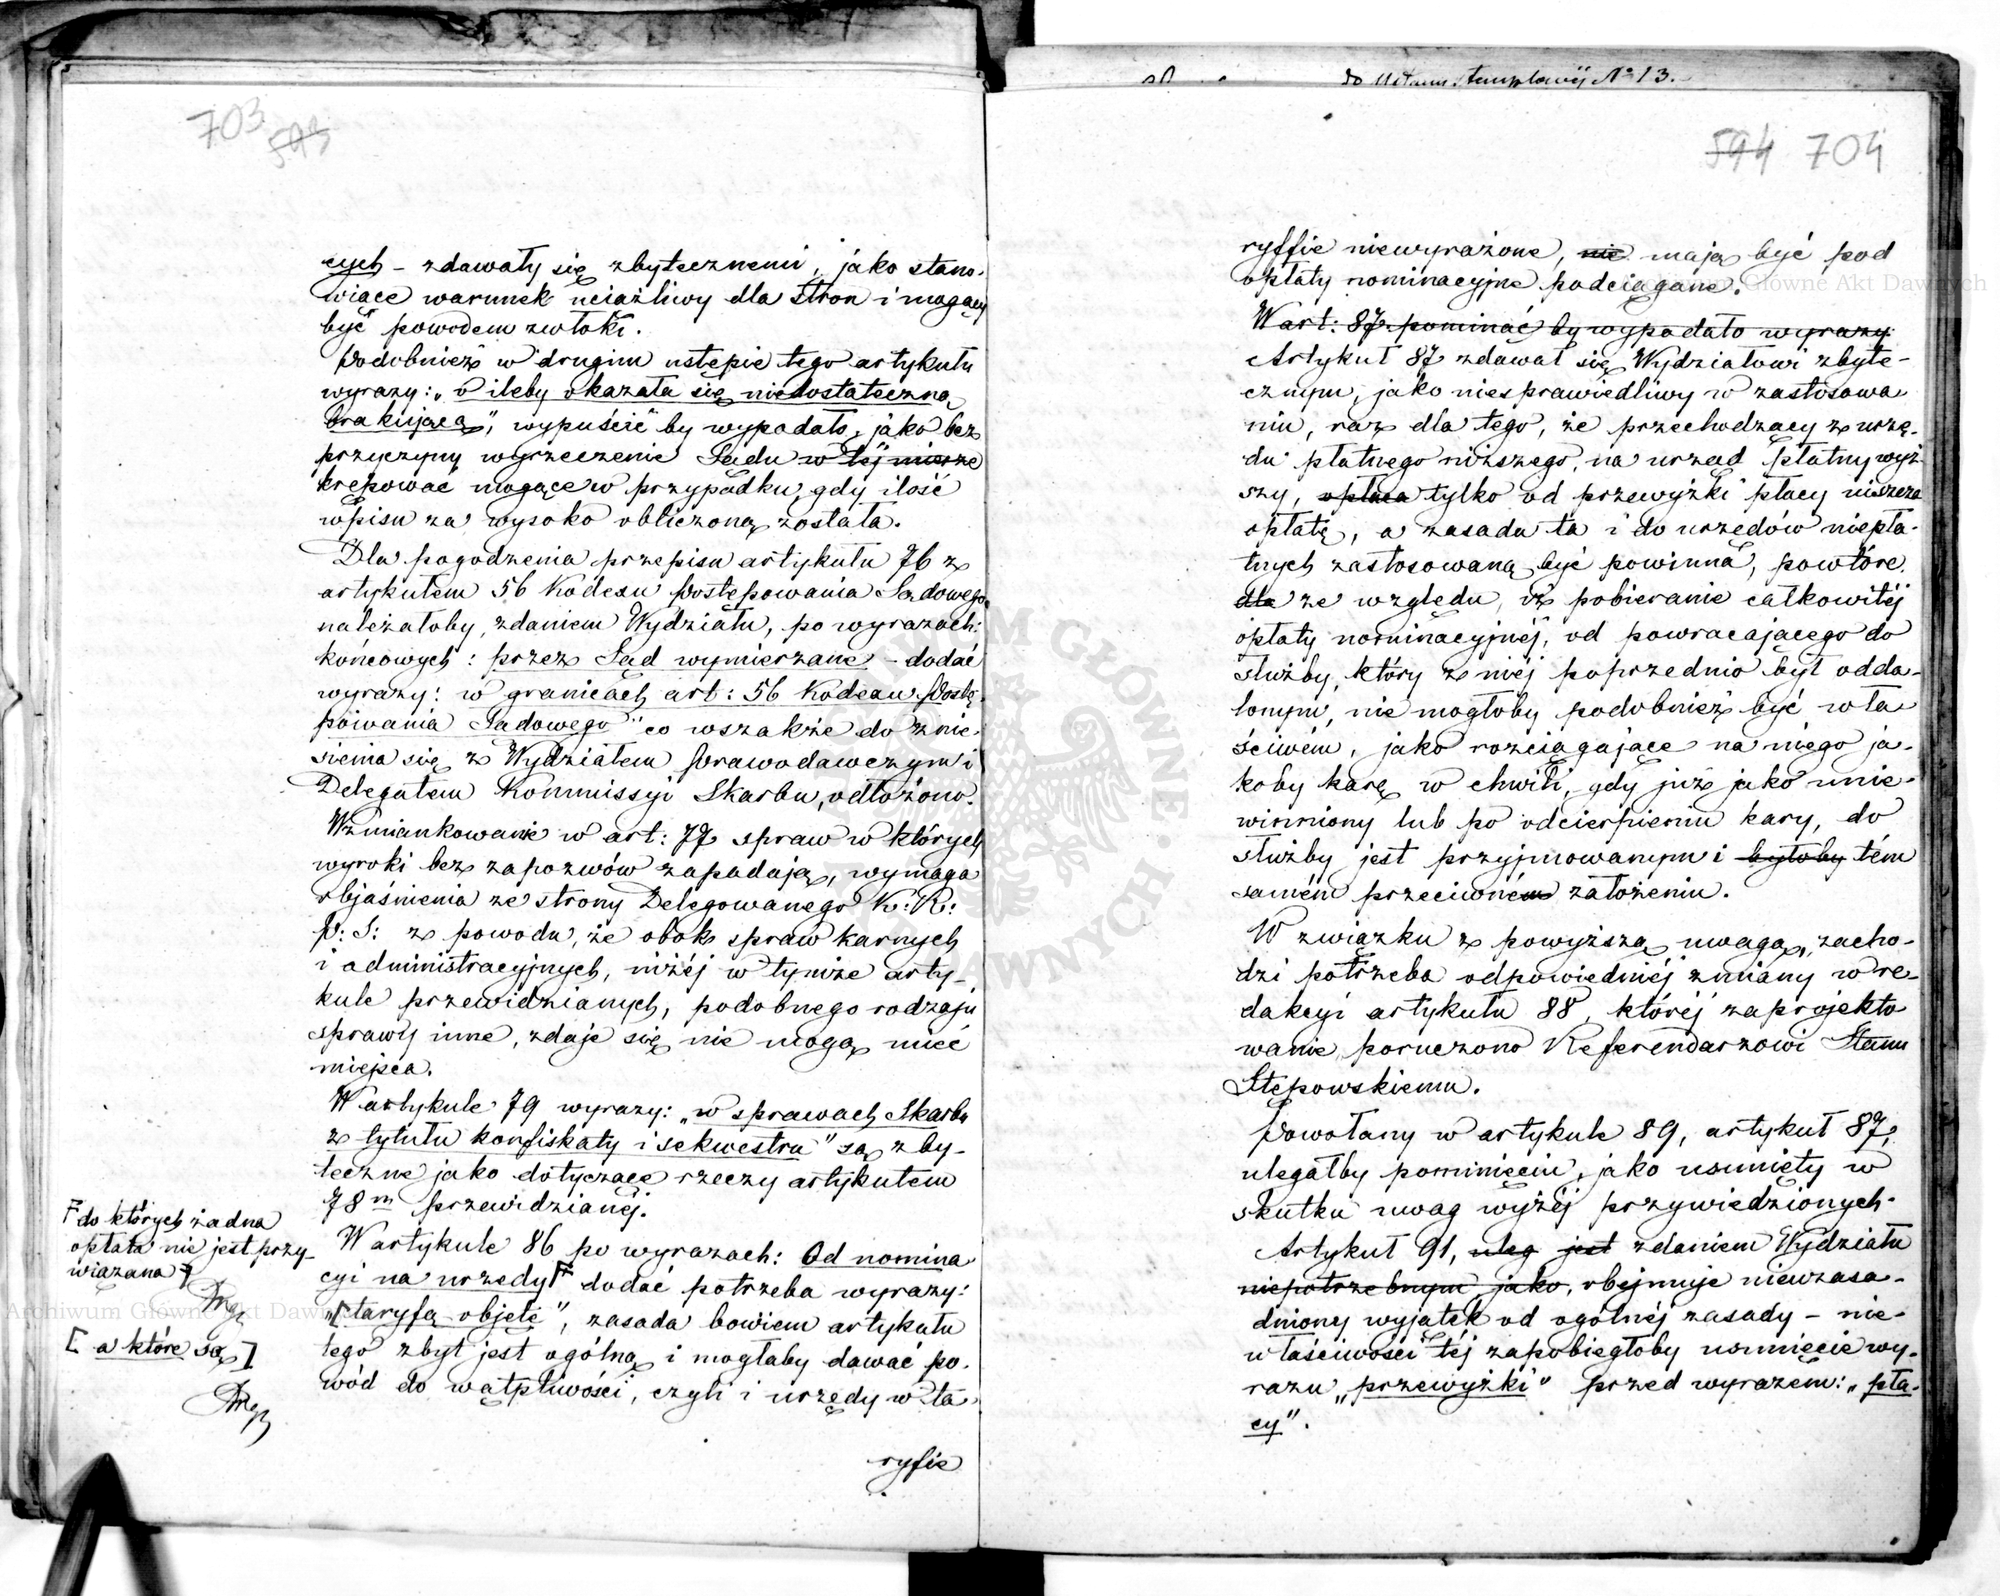 703
593
cych – zdawały się zbytecznemi, jako stano-
wiące warunek uciążliwy dla stron i mogący
być powodem zwłoki.
Podobnież w drugim ustępie tego artykułu
wyrazy: „o ileby okazała się niedostateczną
brakującą", wypuścić by wypadało, jako bez
przyczyny wyrzeczenie Sądu w tej mierze
krępować mogące w przypadku, gdy ilość
wpisu za wysoko obliczoną została.
Dla pogodzenia przepisu artykułu 76 z
artykułem 56 Kodexu Postępowania Sądowego
należałoby, zdaniem Wydziału, po wyrazach:
końcowych: przez Sąd wymierzane – dodać
wyrazy: w granicach art: 56 Kodexu Postę-
powania Sądowego" co wszakże do znie-
sienia się z Wydziałem Prawodawczym i
Delegatem Kommissyi Skarbu, odłożono.
Wzmiankowanie w art: 77 spraw w których
wyroki bez zapozwów zapadają, wymaga
objaśnienia ze strony Delegowanego K: R:
P: S: z powodu, że obok spraw karnych
i administracyjnych, niżéj w tymże arty-
kule przewidzianych, podobnego rodzaju
sprawy inne, zdaje się nie mogą mieć
miejsca.
W artykule 79 wyrazy: „w sprawach Skarbu
z tytułu konfiskaty i sekwestru" są zby-
teczne jako dotyczące rzeczy artykułem
78m przewidzianéj.
W artykule 86 po wyrazach: Od nomina
cyi na urzędy Γ dodać potrzeba wyrazy:
„[taryfą objęte", zasada bowiem artykułu
tego zbyt jest ogólną i mogłaby dawać po-
wód do wątpliwości, czyli i urzędy w ta-
ryfie
Γ do których żadna
opłata nie jest przy
wiązana ꓶ
[ a które są ]
do Ustawy stemplowéj No 13.
594 704
ryffie niewyrażone, nie mają być pod
opłaty nominacyjne podciągane.
W art: 87 pominąć by wypadało wyrazy
Artykuł 87 zdawał się Wydziałowi zbyte-
cznym, jako niesprawiedliwy w zastosowa
niu, raz dla tego, że przechodzący z urzę-
du płatnego niższego, na urząd płatny wyż-
szy, opłaca tylko od przewyżki płacy uiszcza
opłatę, a zasada ta i do urzędów niepła-
tnych zastosowaną być powinna, powtóre
dla ze względu, iż pobieranie całkowitéj
opłaty nominacyjnéj, od powracającego do
służby, który z niéj poprzednio był odda-
lonym, nie mogłoby podobnież być wła
ściwém, jako rozciągające na niego ja-
koby karę w chwili, gdy już jako unie-
winniony lub po odcierpieniu kary, do
służby jest przyjmowanym i byłoby tém
samém przeciwném założeniu.
W związku z powyższą uwagą, zacho-
dzi potrzeba odpowiedniéj zmiany w re-
dakcyi artykułu 88, któréj zaprojekto
wanie, poruczono Referendarzowi Stanu
Stępowskiemu.
Powołany w artykule 89, artykuł 87,
ulegałby pominięciu, jako usunięty w
skutku uwag wyżéj przywiedzionych.
Artykuł 91, uleg jest zdaniem Wydziału
niepotrzebnym, jako, obejmuje nieuzasa-
dniony wyjątek od ogólnéj zasady – nie-
właściwości téj zapobiegłoby usunięcie wy-
razu „przewyżki" przed wyrazem: „pła-
cy".